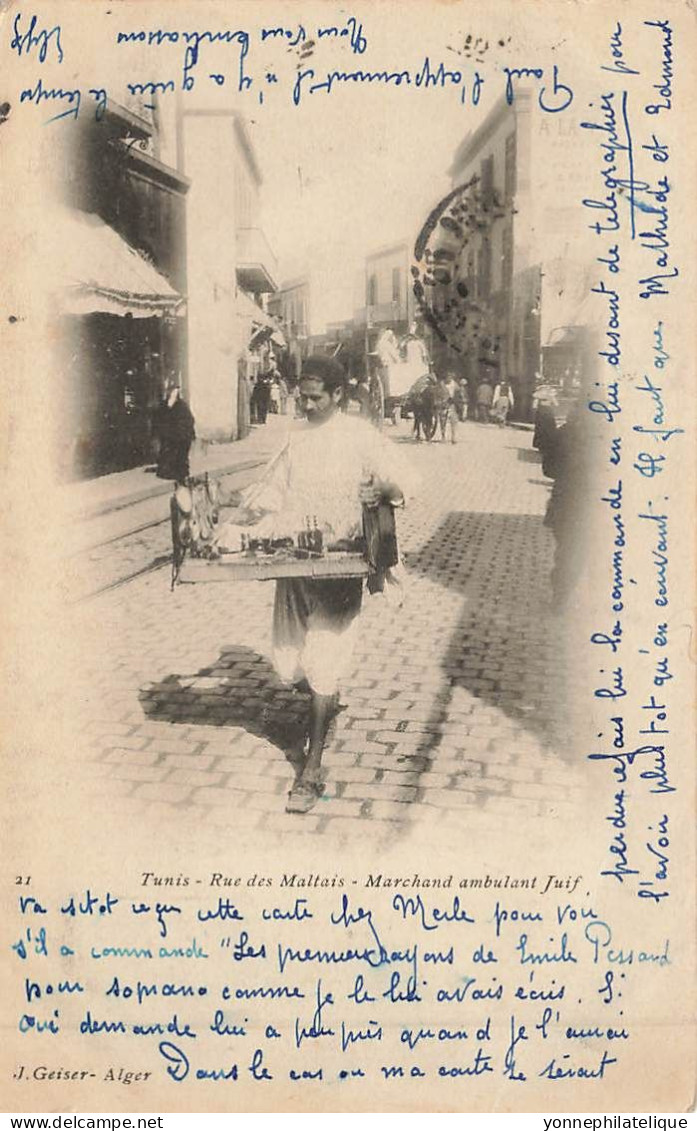 21 Tunis - Rue des Maltais - Marchand ambulant Juif
va sitot reçu cette carte chez Merle pour voir
s'il a commandé "Les premiers rayons de Emile Pessard
pour soprano comme je le lui avais écris. Si
oui demande lui a peu près quand je l'aurai
Dans le cas ou ma carte se serait
J. Geiser - Alger
perdue refais lui la commande en lui disant de télégraphier pour
l'avoir plus tôt qu'en écrivant. Il faut que Mathilde et Edmond
l'apprennent il n'y a que le temps
Nous vous embrassons
yonnephilatelie - Delcampe.net